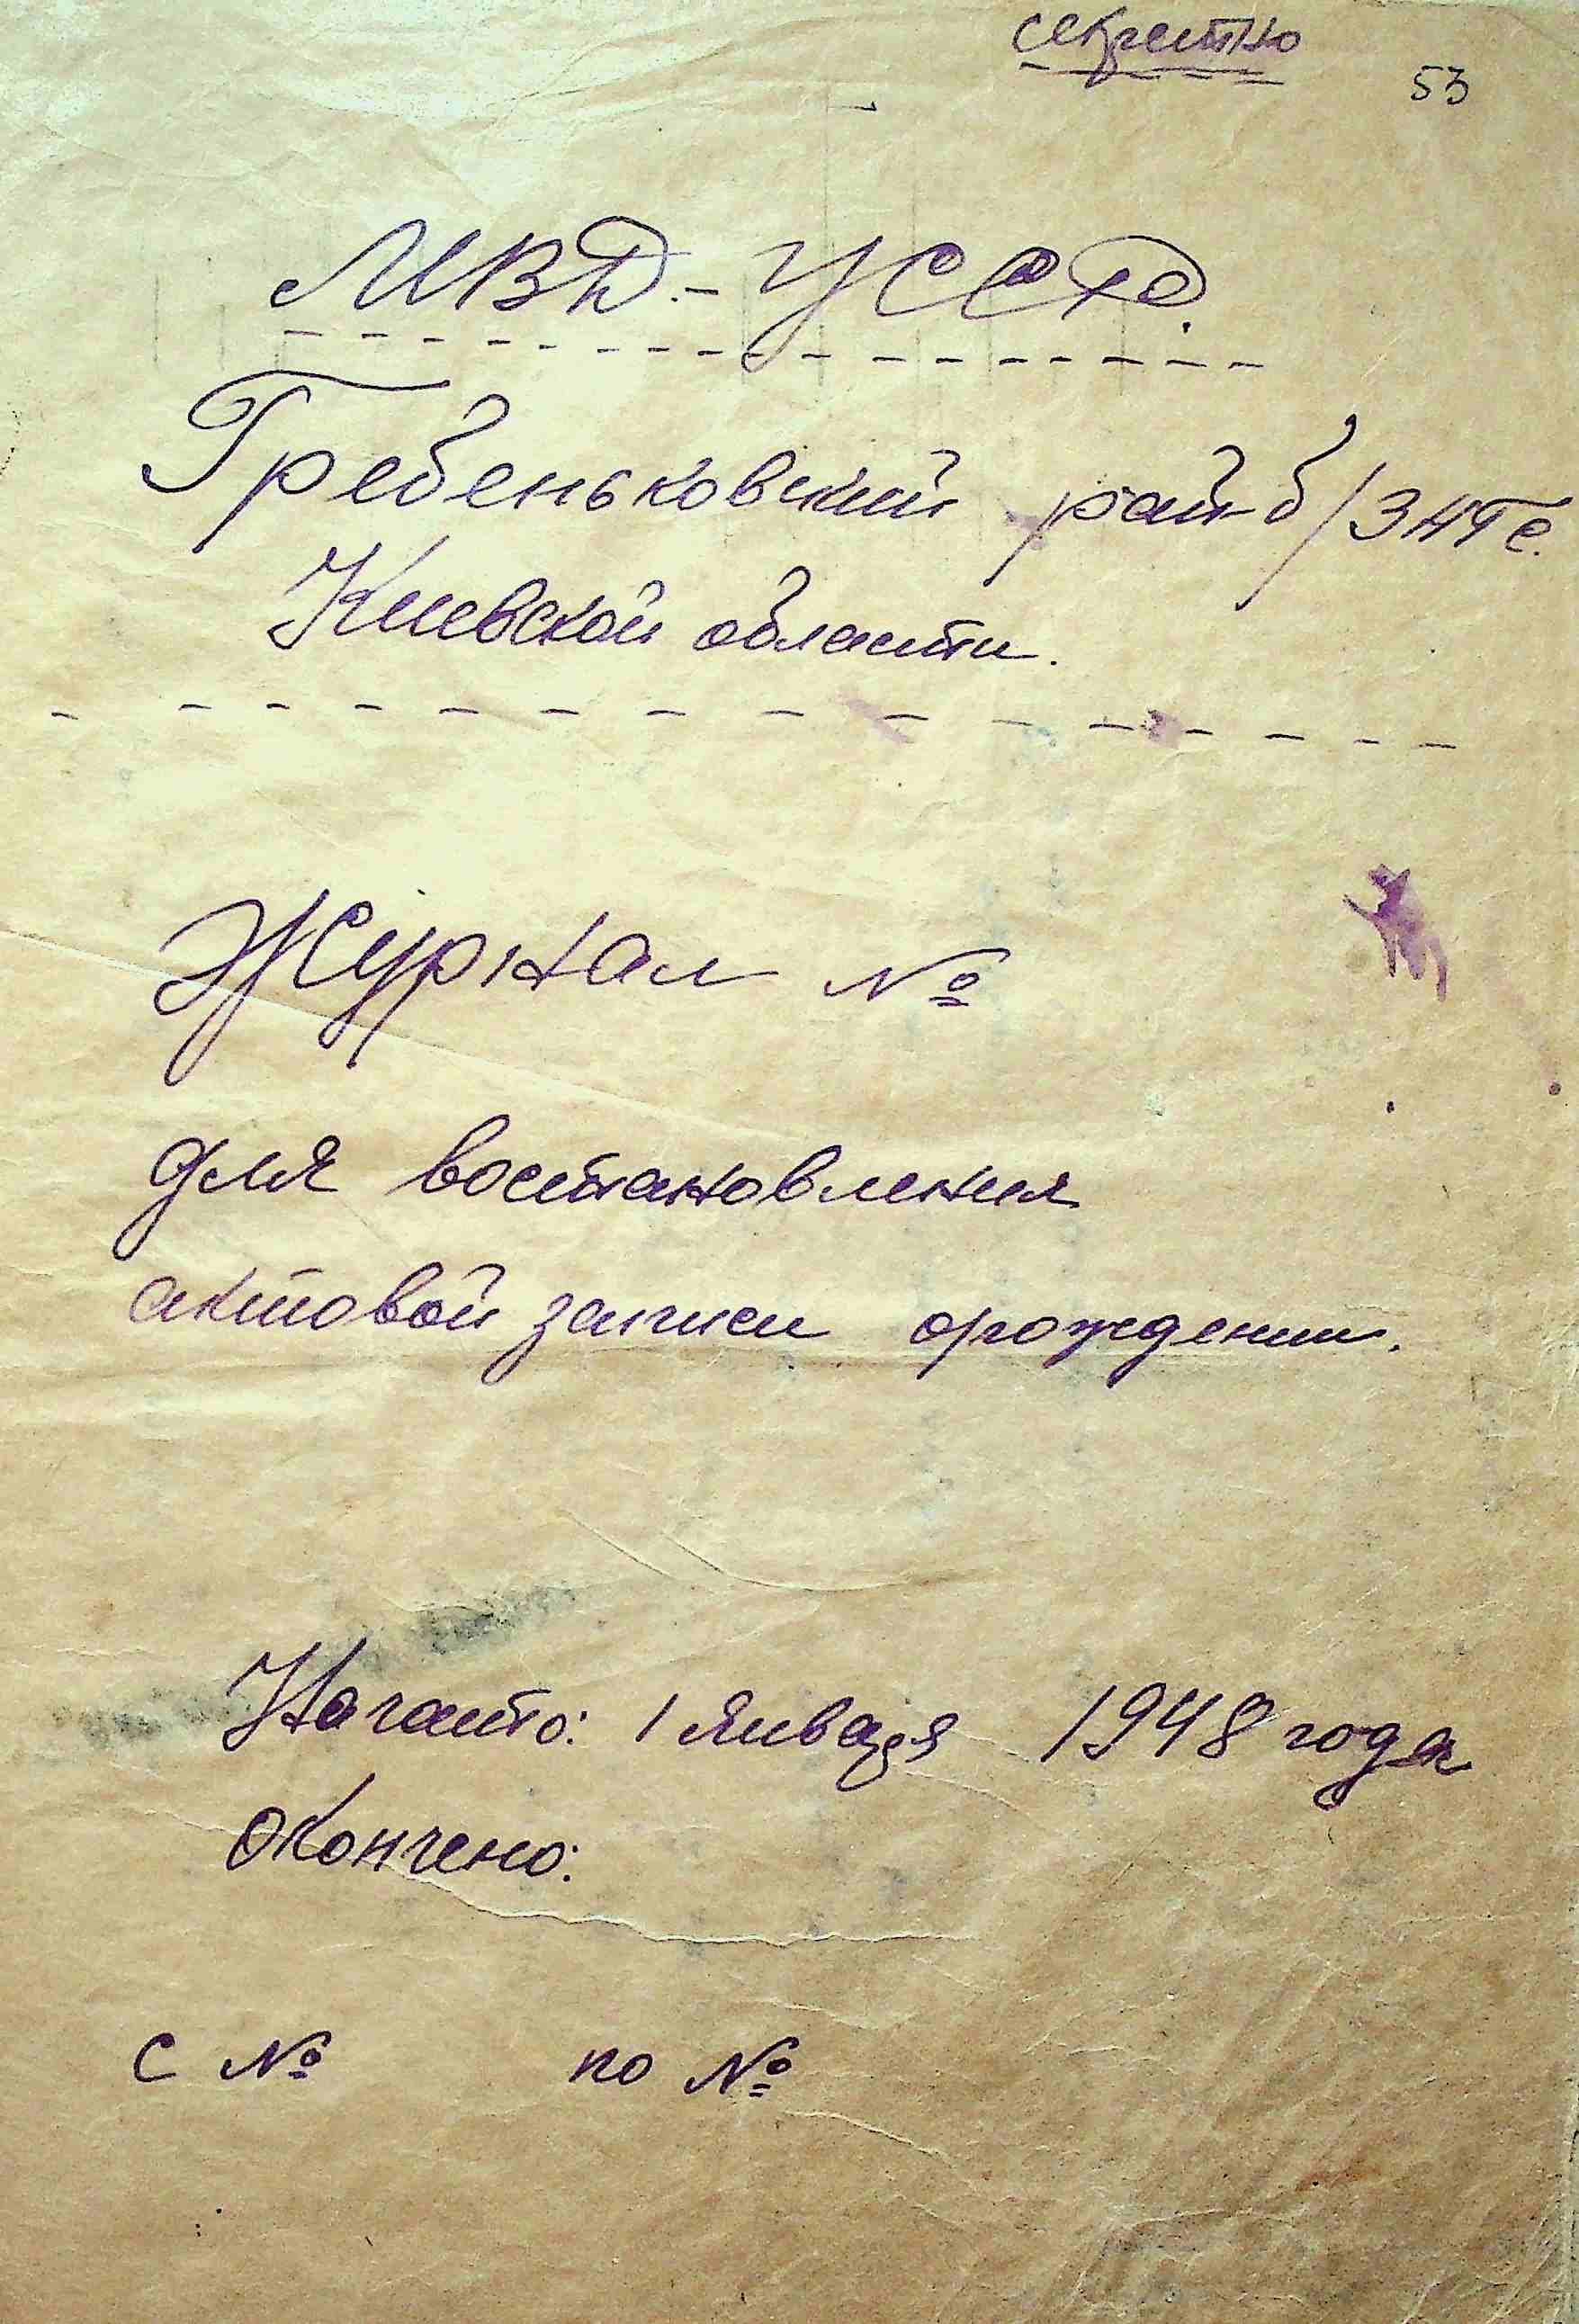 секретно
53
МВД.-УССР.
Гребеньковский рай-б/ЗАГС.
Киевской области.
Журнал №
для востановления
актовой записи орождении.
Начато: 1 Января 1948 года
Окончено:
С № по №